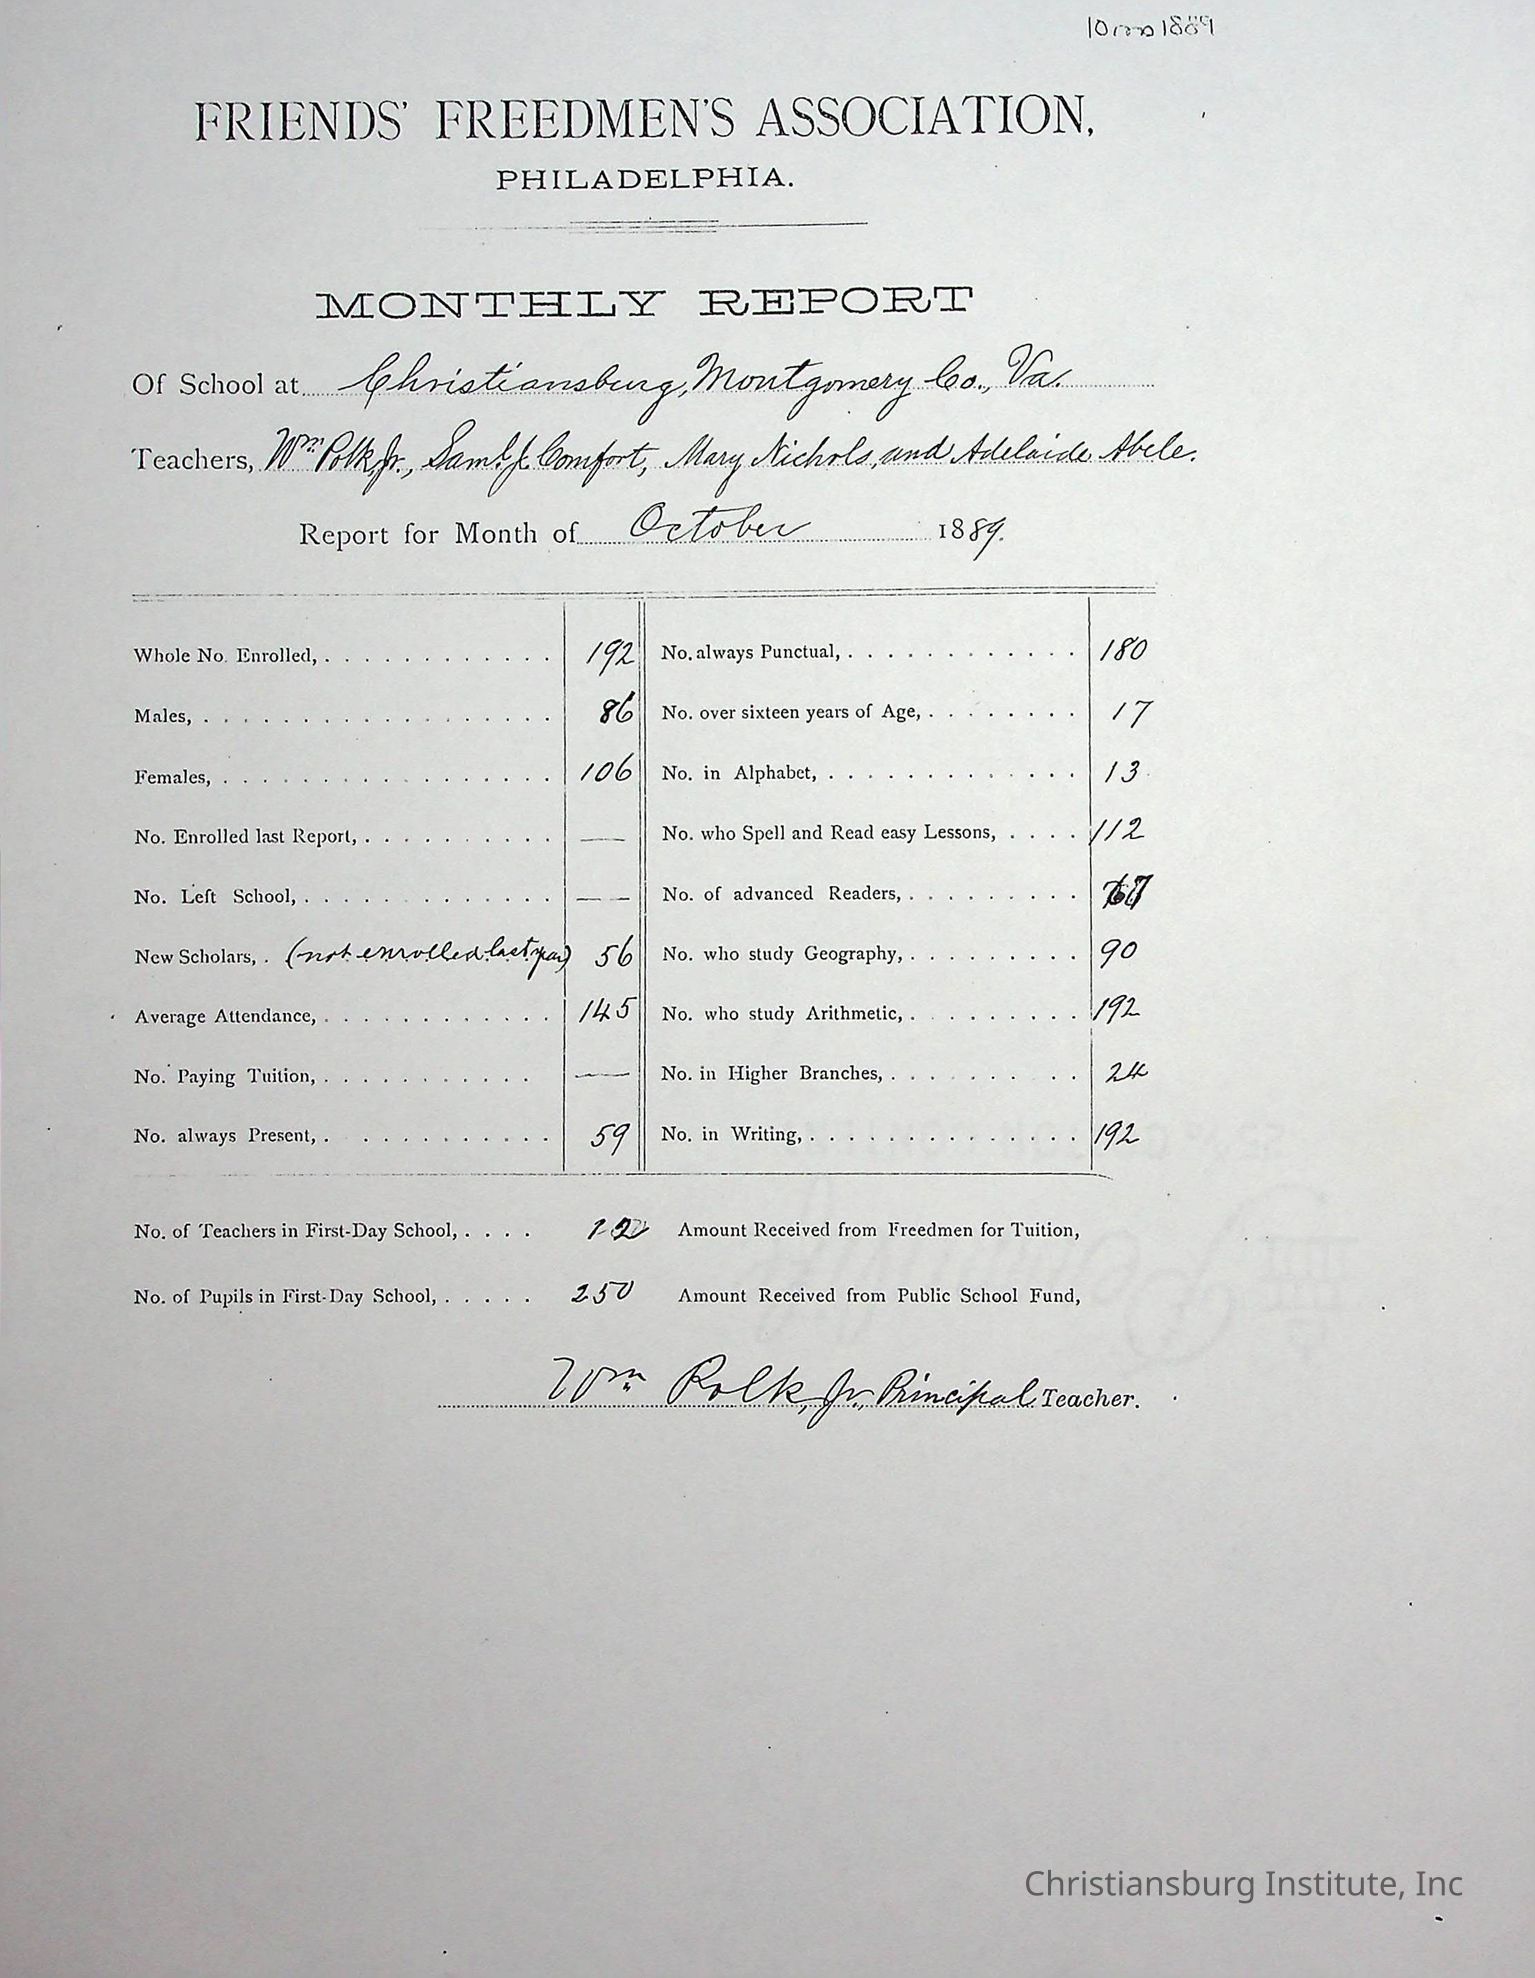 10 mo 1889
FRIENDS' FREEDMEN'S ASSOCIATION,
PHILADELPHIA.
MONTHLY REPORT
Of School at Christiansburg, Montgomery Co., Va.
Teachers, Wm Polk Jr., Saml. J. Comfort, Mary Nichols, and Adelaide Abele.
Report for Month of October 1889.
Whole No. Enrolled, 192 No. always Punctual, 180
Males, 86 No. over sixteen years of Age, 17
Females, 106 No. in Alphabet, 13
No. Enrolled last Report, — No. who Spell and Read easy Lessons, 112
No. Left School, — — No. of advanced Readers, 67
New Scholars, (not enrolled last year) 56 No. who study Geography, 90
Average Attendance, 145 No. who study Arithmetic, 192
No. Paying Tuition, — No. in Higher Branches, 24
No. always Present, 59 No. in Writing, 192
No. of Teachers in First-Day School, 12 Amount Received from Freedmen for Tuition,
No. of Pupils in First-Day School, 250 Amount Received from Public School Fund,
Wm Polk, Jr., Principal Teacher.
Christiansburg Institute, Inc